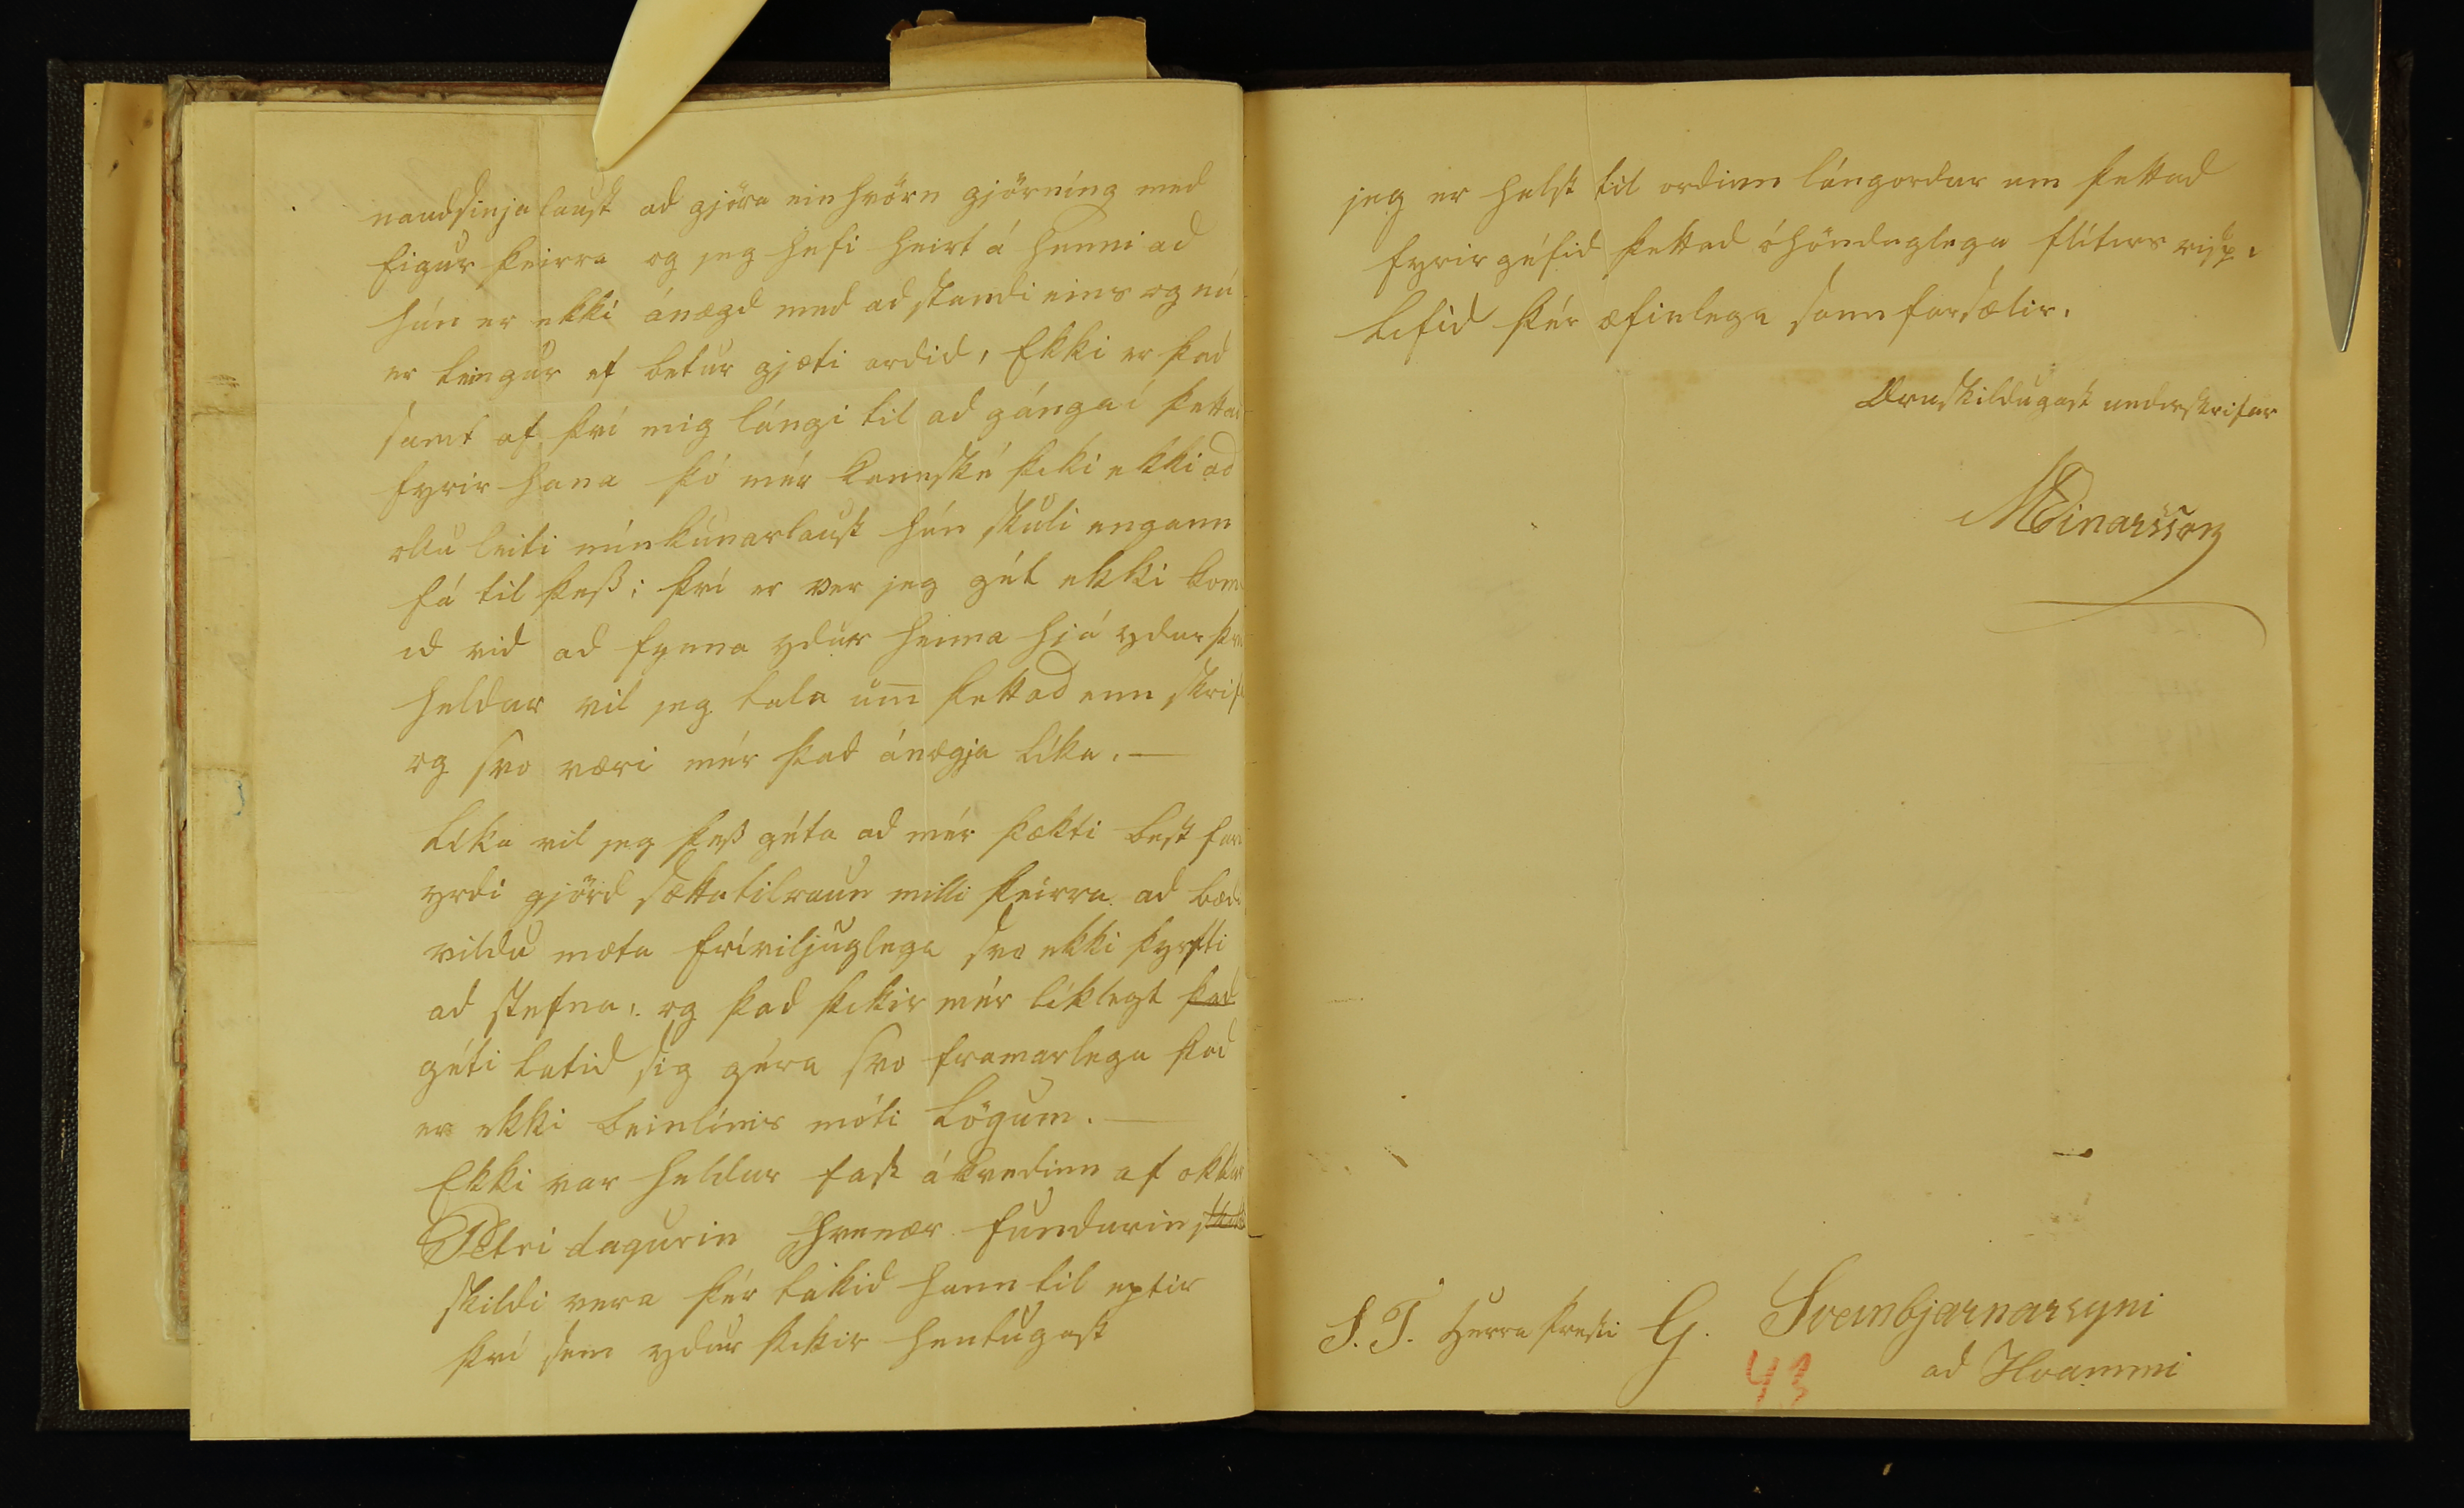 naudsinja laust ad gjöra einhvörn gjörníng med
Eigur þeirra og jeg hefi heirt á henni ad
hún er ekki ánægd med ad standi eins og nú
er leingur ef betur gjæti ordid, Ekki er þad
samt af því mig lángi til ad gánga í þettad
fyrir hana þó mér kannské þiki ekki ad
ollu leiti mínkunarlaust hún skuli engann
fá til þess; því er ver jeg gét ekki kom
id vid ad fynna ydur heima hjá ydur því
heldur vil jeg tala um þettad enn skrif
og svo væri mér þad ánægja líka. —
Líka vil jeg þess géta ad mér þækti best far
yrdi gjörd sættatilraun milli þeirra ad bæd
vildu mæta fríviljuglega svo ekki þyrfti
ad stefna: og þad þikir mér líklegt þad
géti latid sig géra svo framarlega þad
er ekki beinlínis móti Lögum. —
Ekki var heldur fast ákvedinn af okkur
Petri dagurin hvenær fundurin skild
skildi vera þér takid hann til eptir
því sem ydur þikir hentugast
jeg er helst til ordinn lángordur um þettad
fyrirgéfid þettad óhönduglega flítirs risp.
Lifid þér æfinlega sannfarsælir.
Druskildugast underskrifar
MEinarsson
S. T. Herra Presti G. Sveinbjarnarsyni
ad Hvammi
43